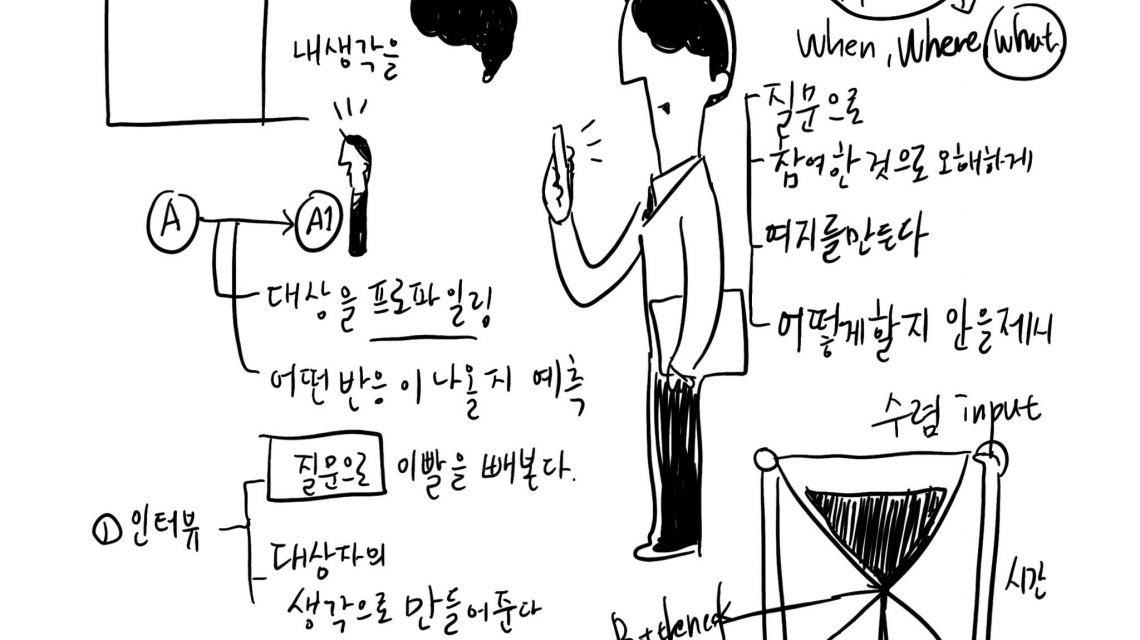 내생각을
A
A1
대상을 프로파일링
어떤 반응이 나올지 예측
① 인터뷰
질문으로 이빨을 빼본다.
대상자의
생각으로 만들어준다
When, Where, what
질문으로
참여한 것으로 오해하게
여지를만든다
어떻게할지 안을제시
수렴 input
시간
Bottleneck